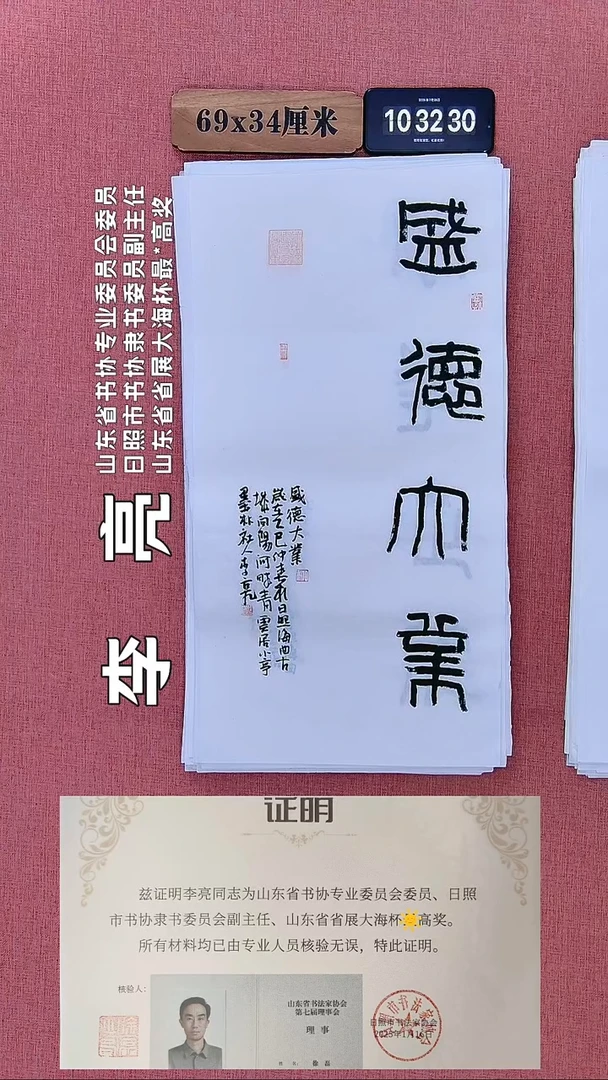 69x34厘米
10 32 30
山东省书协专业委员会委员
日照市书协隶书委员副主任
山东省省展大海杯最*高奖
李亮
盛德大業
盛德大業
歲在乙巳仲春於日照海曲古
城向陽河畔青雲居小亭
墨朴社人李亮
证明
兹证明李亮同志为山东省书协专业委员会委员、日照
市书协隶书委员会副主任、山东省省展大海杯高奖。
所有材料均已由专业人员核验无误，特此证明。
核验人：
山东省书法家协会
第七届理事会
理事
姓名 徐磊
日照市书法家协会
2025年1月16日